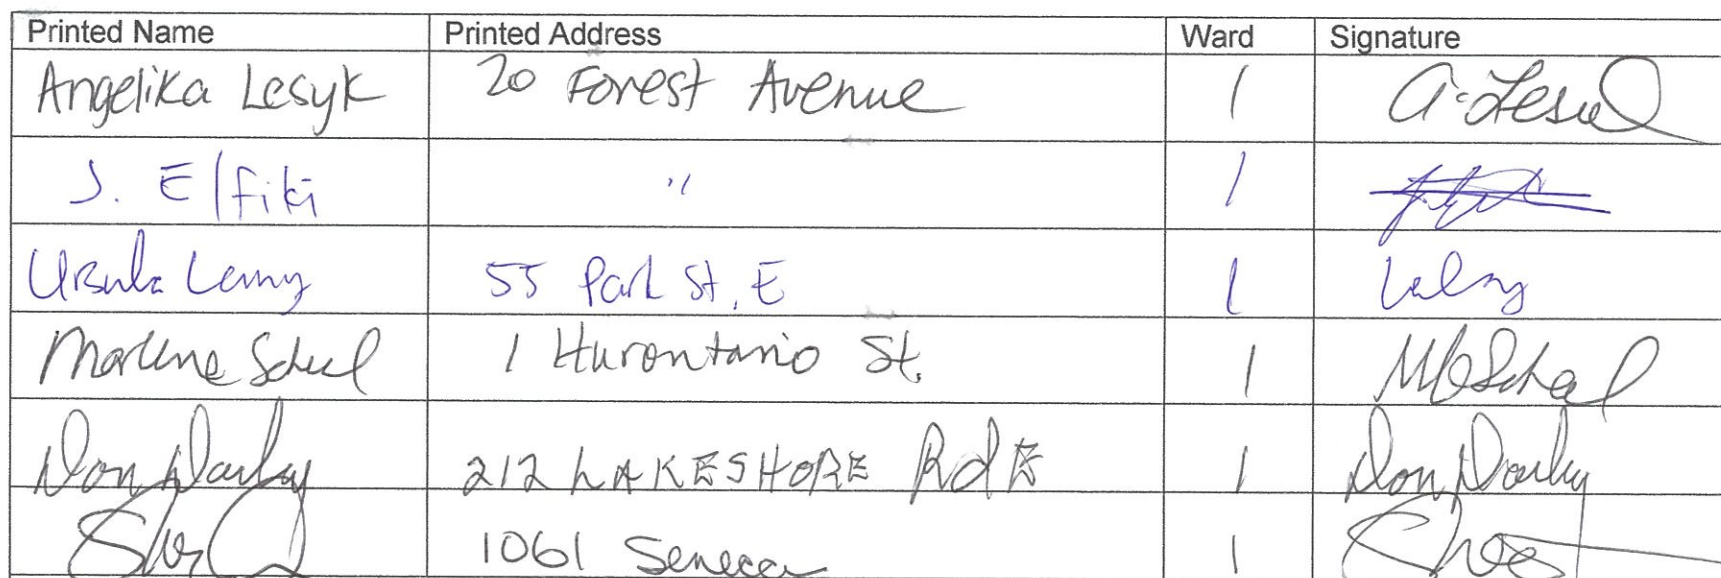 Printed Name Printed Address Ward Signature
Angelika Lesyk 20 Forest Avenue 1 A. Lesyk
S. Elfiki " 1
Ursula 55 Park St. E 1
Marlene Scheel 1 Hurontario St. 1 Scheel
Don Darby 212 LAKESHORE Rd E 1 Don Darby
1061 Seneca 1